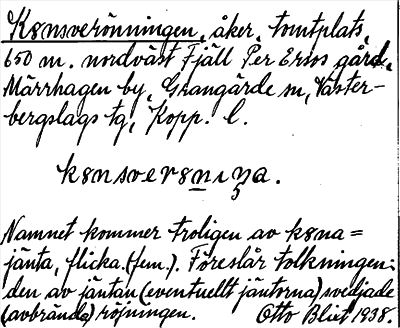 Kønsverönningen, åker, tomtplats,
650 m. nordväst Fjäll Per Ersos gård,
Märrhagen by, Grangärde sn, Väster-
bergslags tg, Kopp. l.
kønsverønıŋa.
Namnet kommer troligen av køna =
jänta, flicka. (fem.). Föreslår tolkningen:
den av jäntan (eventuellt jäntorna) svedjade
(avbrända) röjningen. Otto Blixt 1938.